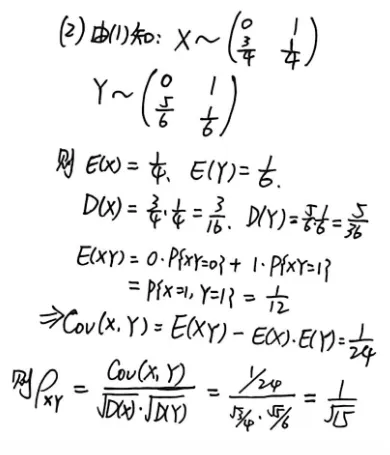 (2) 由(1)知: X ~ (0 1
3/4 1/4)
Y ~ (0 1
5/6 1/6)
则 E(X) = 1/4、 E(Y) = 1/6.
D(X) = 3/4·1/4 = 3/16. D(Y) = 5/6·1/6 = 5/36
E(XY) = 0·P{XY=0} + 1·P{XY=1}
= P{X=1, Y=1} = 1/12
⇒ Cov(X,Y) = E(XY) - E(X)·E(Y) = 1/24
则 ρXY = Cov(X,Y)/√D(X)·√D(Y) = 1/24/√3/4·√5/6 = 1/√15